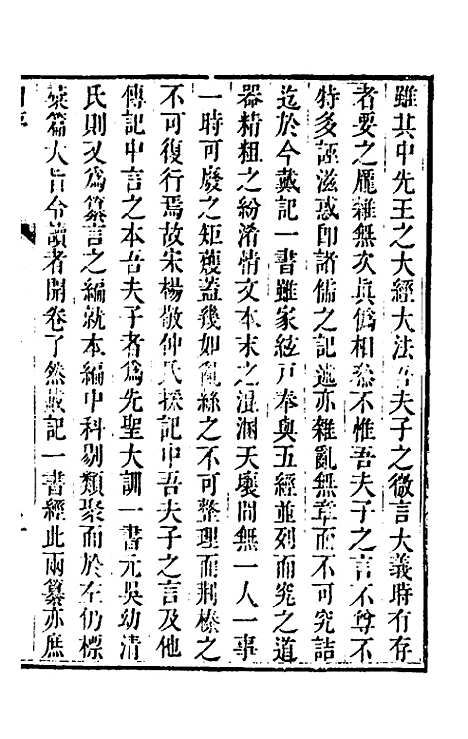 雖其中先王之大經大法吾夫子之微言大義時有存
者要之厖雜無次眞僞相叅不惟吾夫子之言不尊不
特多誣滋惑卽諸儒之記述亦雜亂無章而不可究詰
迄於今戴記一書雖家絃戸奉與五經並列而究之道
器精粗之紛淆情文本末之混溷天壤間無一人一事
一時可廢之矩矱蓋幾如亂絲之不可整理而荆榛之
不可復行焉故宋楊敬仲氏採記中吾夫子之言及他
傳記中言之本吾夫子者爲先聖大訓一書元吳幼淸
氏則又爲纂言之編就本編中科剔類聚而於左仍標
篇大旨令讀者開卷了然戴記一書經此兩纂亦庶